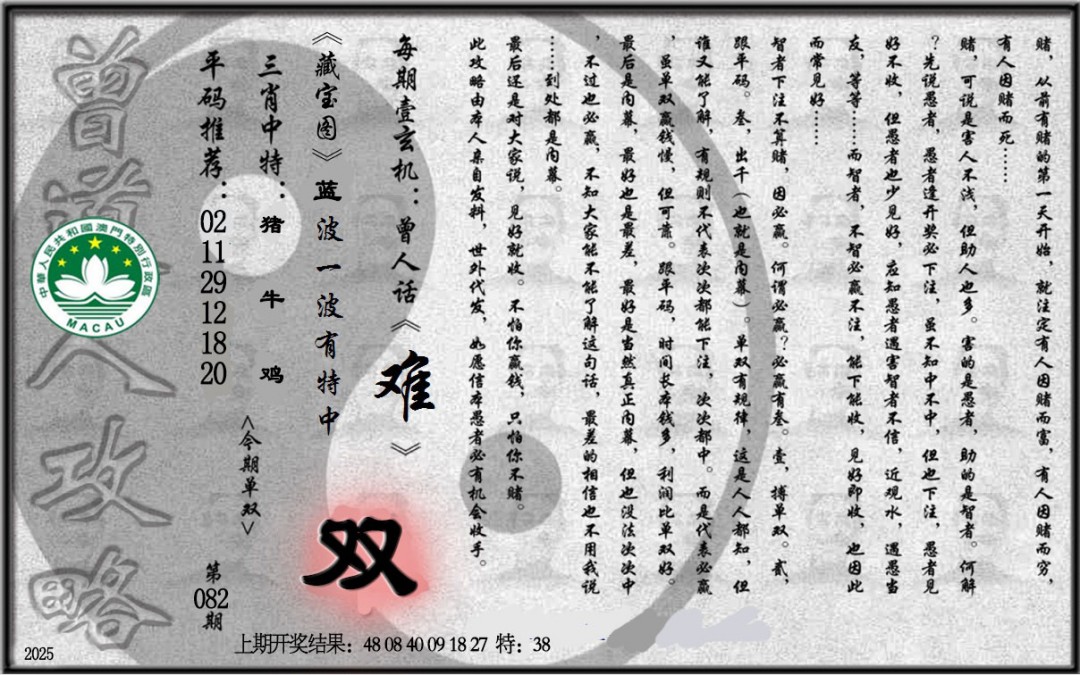 赌，从前有赌的第一天开始，就注定有人因赌而富，有人因赌而穷，
有人因赌而死……
赌，可说是害人不浅，但助人也多。害的是愚者，助的是智者。何解
？先说愚者，愚者逢开奖必下注，虽不知中不中，但也下注，愚者见
好不收，但愚者也少见好，应知愚者遇害智者不信，近观水，遇愚当
友，等等……而智者，不智必赢不注，能下能收，见好即收，也因此
而常见好……
智者下注不算赌，因必赢。何谓必赢？必赢有叁。壹，搏单双。贰，
跟平码。叁，出千（也就是内幕）。单双有规律，这是人人都知，但
谁又能了解，有规则不代表次次都能下注，次次都中。而是代表必赢
，虽单双赢钱慢，但可靠。跟平码，时间长本钱多，利润比单双好。
最后是内幕，最好也是最差，最好是当然真正内幕，但也没法次次中
，不过也必赢，不知大家能不能了解这句话，最差的相信也不用我说
……到处都是内幕。
最后还是对大家说，见好就收。不怕你赢钱，只怕你不赌。
此攻略由本人亲自发料，世外代发，如愿信本愚者必有机会收手。
每期壹玄机：曾人话《难》
《藏宝图》蓝波一波有特中
三肖中特：猪 牛 鸡
<今期单双>
双
平码推荐：02 11 29 12 18 20
第082期
曾道人攻略
中華人民共和國澳門特別行政區
MACAU
上期开奖结果：48 08 40 09 18 27 特：38
2025